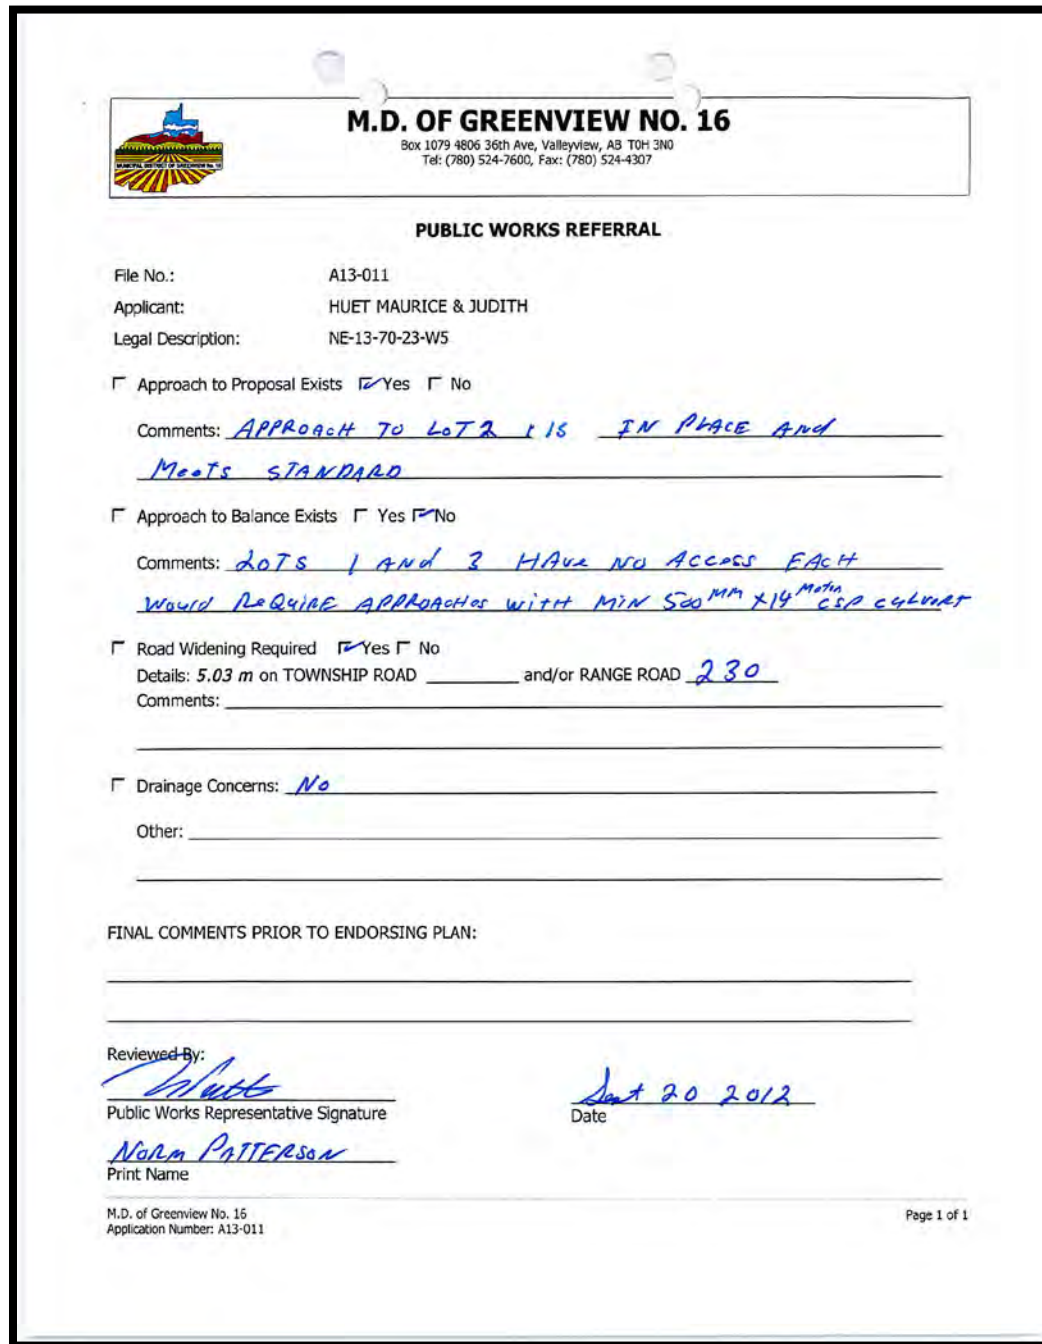 M.D. OF GREENVIEW NO. 16
Box 1079 4806 36th Ave, Valleyview, AB T0H 3N0
Tel: (780) 524-7600, Fax: (780) 524-4307
MUNICIPAL DISTRICT OF GREENVIEW No. 16
PUBLIC WORKS REFERRAL
File No.: A13-011
Applicant: HUET MAURICE & JUDITH
Legal Description: NE-13-70-23-W5
Approach to Proposal Exists Yes No
Comments: APPROACH TO LOT 2 IS IN PLACE And
MeeTS STANDARD
Approach to Balance Exists Yes No
Comments: LOTS 1 AND 3 HAve NO Access EACH
Would ReQuiRE APPROACHes with MiN 500 MM X 14 Meter CSP culvert
Road Widening Required Yes No
Details: 5.03 m on TOWNSHIP ROAD and/or RANGE ROAD 230
Comments:
Drainage Concerns: No
Other:
FINAL COMMENTS PRIOR TO ENDORSING PLAN:
Reviewed By:
Sept 20 2012
Public Works Representative Signature Date
NORM PATTERSON
Print Name
M.D. of Greenview No. 16
Application Number: A13-011
Page 1 of 1